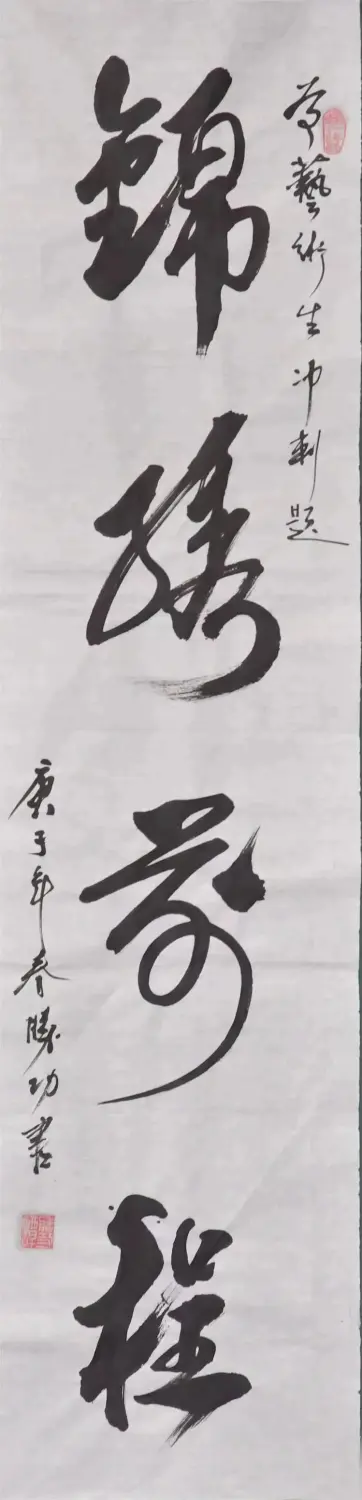 为藝術生冲刺題
錦绣前程
庚子年春勝功書